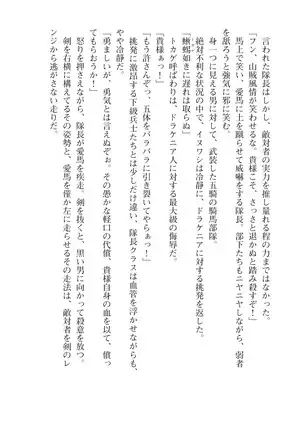 言われた隊長はしかし、敵対者の実力を推し量れる程の力まではなかった。
「フン、山賊風情が笑わせるな。貴様こそ、さっさと退かぬと踏み殺すぞ！」
馬上で笑い、愛馬に土を蹴らせて威嚇をする隊長。部下たちもニヤニヤしながら、弱者
を嬲ろうと強気に邪に笑む。
身一つに見える男に対して、武装した五騎の騎馬部隊。
絶対不利な状況の中で、イヌワシは冷静に、ドラケニア人に対する挑発を返した。
「蜥蜴如きに遅れは取らぬ」
トカゲ呼ばわりは、ドラケニア人に対する最大級の侮辱だ。
「貴様ぁっ！」
「もう許さんぞっ、五体をバラバラに引き裂いてやらぁっ！」
挑発に激昂する下級兵士たちとは少しだけ違い、隊長クラスは血管を浮かせながらも、
やや冷静だ。
「勇ましいが、勇気とは言えぬぞぉ。その愚かな軽口の代償、貴様自身の血を以て、償っ
てもらおうか！」
怒りを押さえながら、隊長が愛馬を疾走。剣を抜くと、黒い男に向かって殺意を放つ。
剣を右横に構えてるその姿勢と、愛馬を僅か左に走らせるその走法は、敵対者を剣のレ
ンジから逃がさない走りだ。